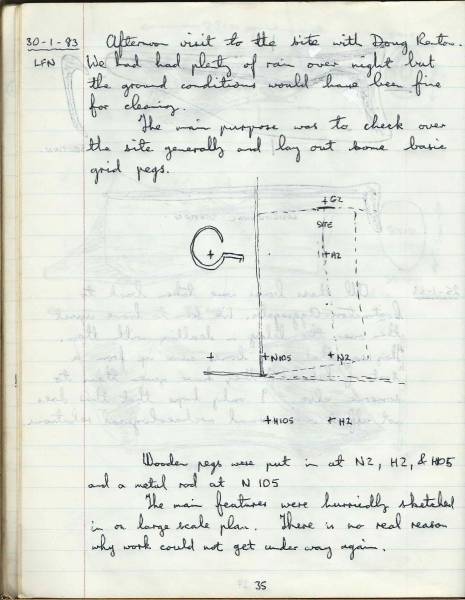 30-1-83 Afternoon visit to the site with Doug Renton.
LFN We had had plenty of rain over night but
the ground conditions would have been fine
for cleaning.
The main purpose was to check over
the site generally and lay out some basic
grid pegs.
+G2
SITE
+A2
+N105 +N2
+H105 +H2
Wooden pegs were put in at N2, H2, & H105
and a metal rod at N 105
The main features were hurriedly sketched
in on large scale plan. There is no real reason
why work could not get under way again.
35